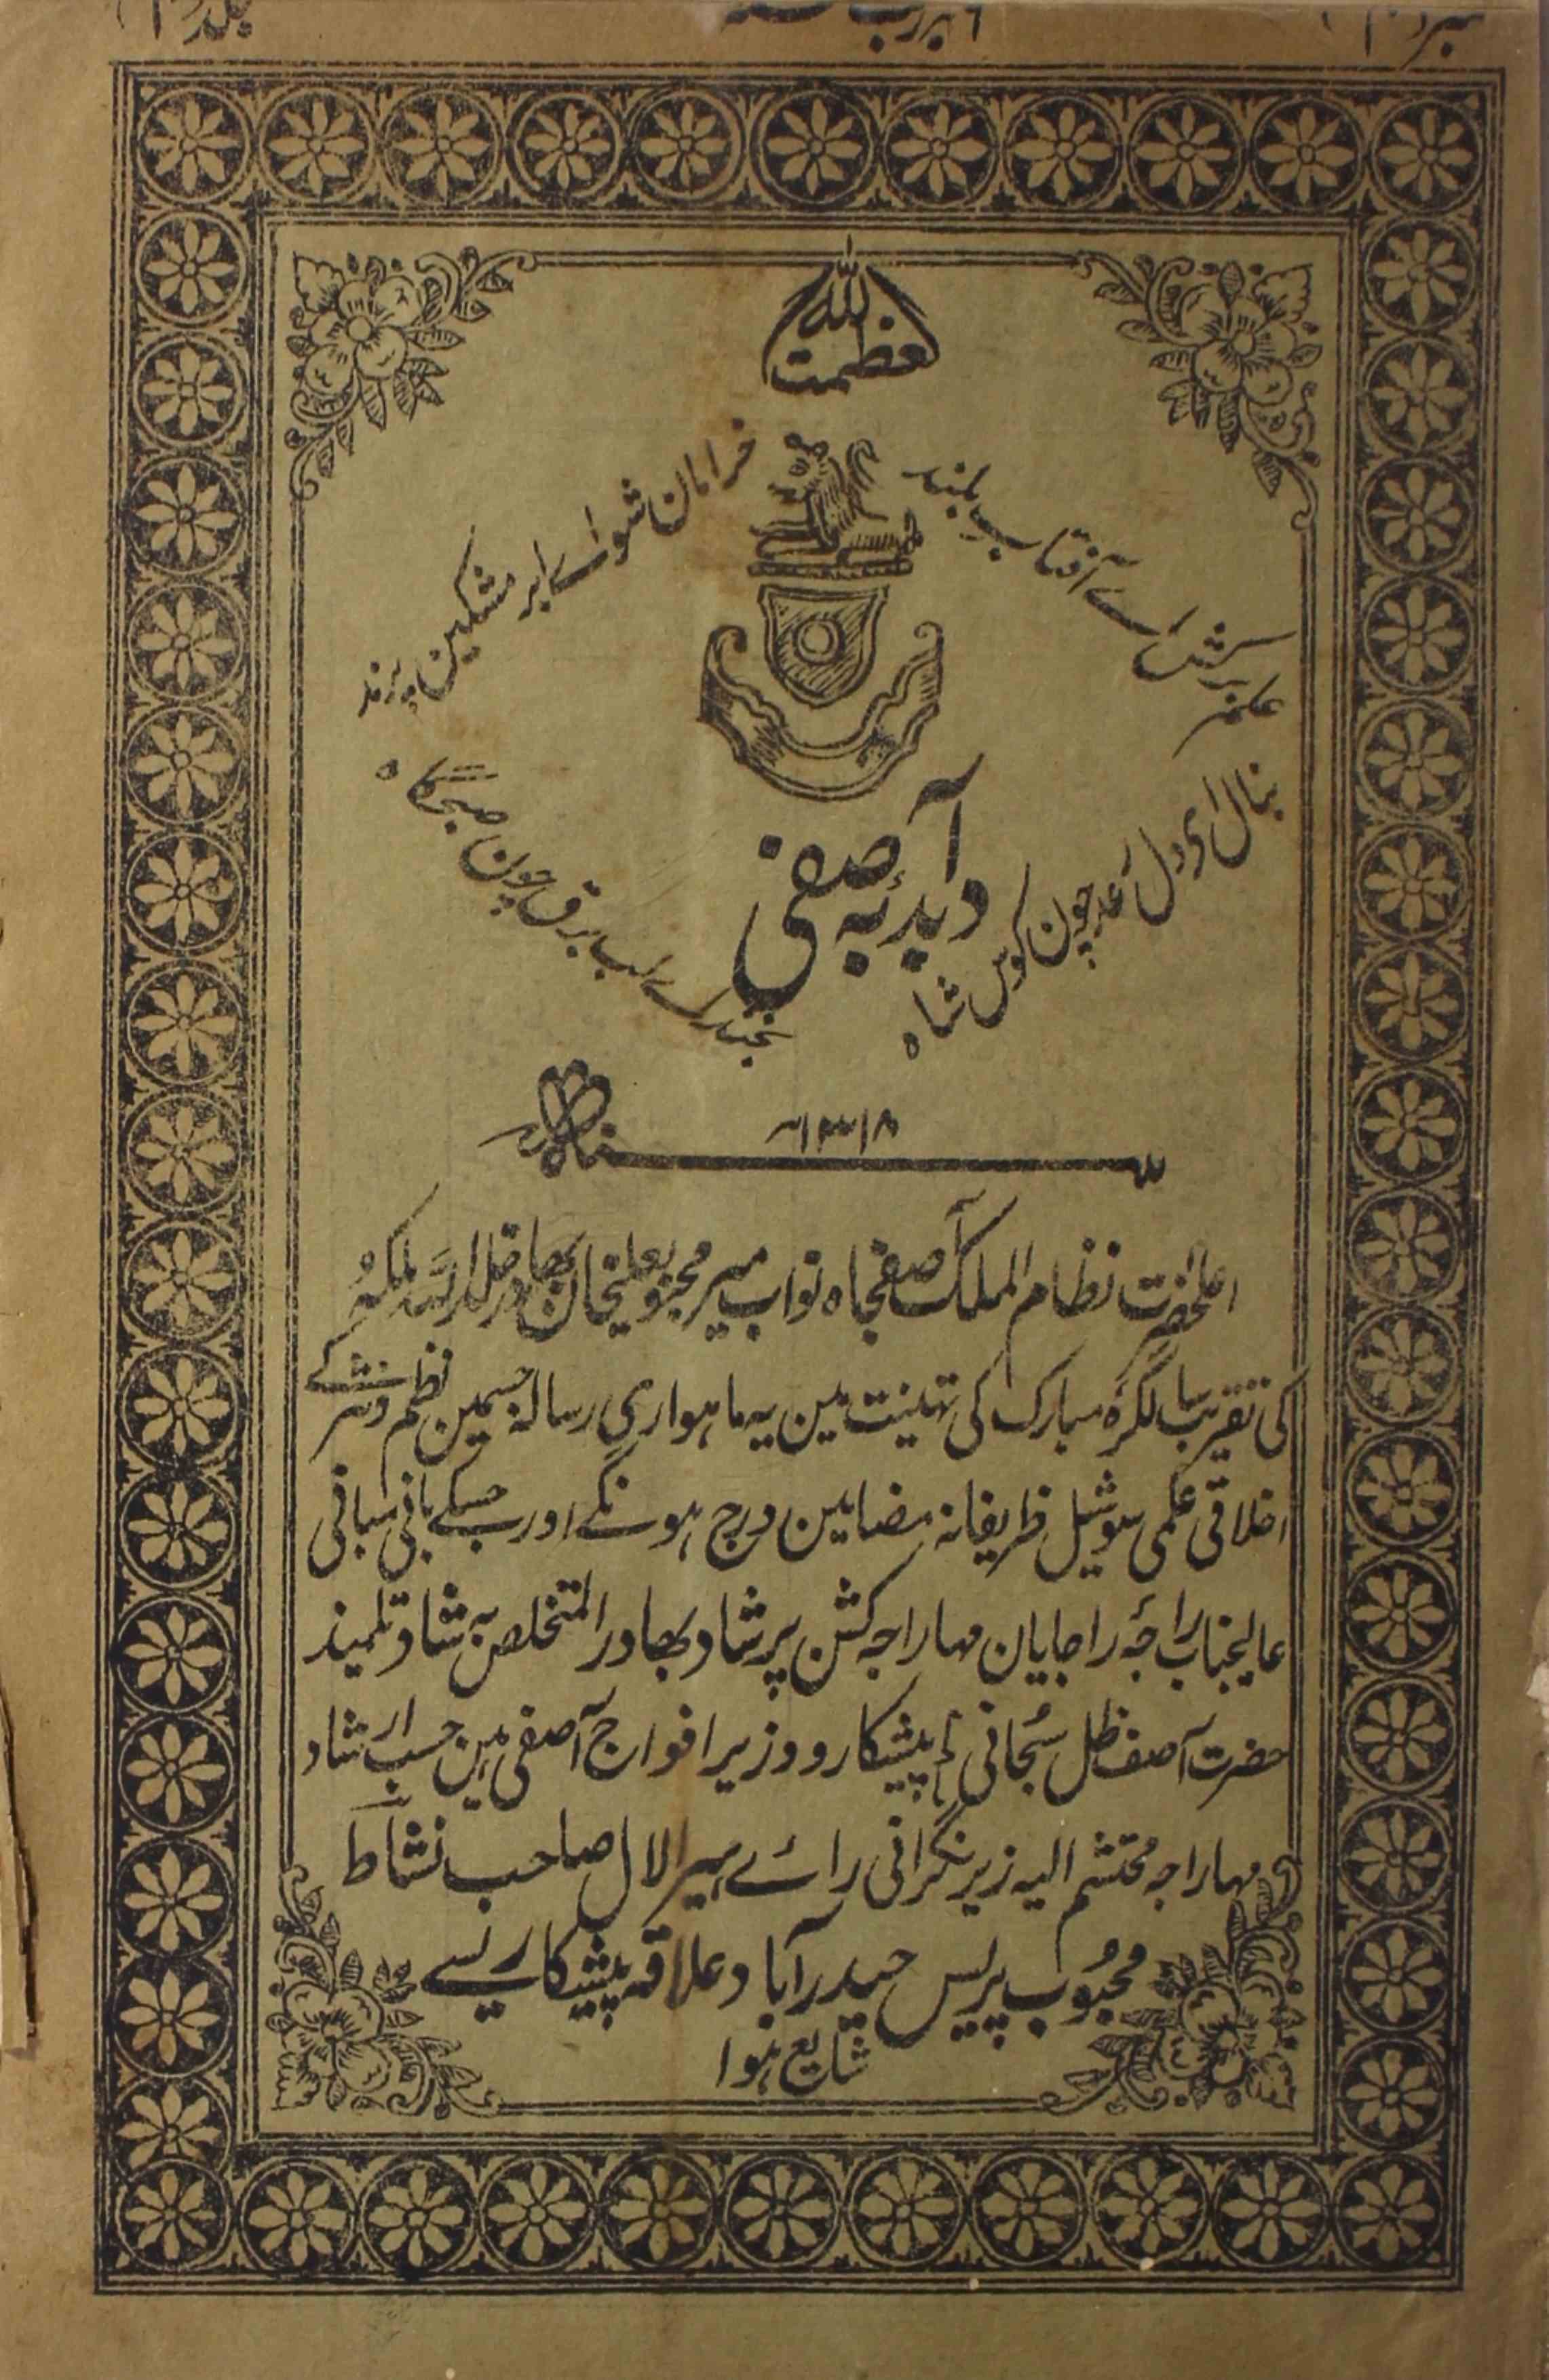 عظمت للہ
علم برکش اے آفتاب بلند
خرامان شو اے ابر مشکین پرند
بنال ای دل رعد چون کوس شاہ
بخند اے لب برق چون صبحگاہ
دبدبۂ آصفی
۱۳۱۸
اعلحضرت نظام الملک آصفجاہ نواب میر محبوبعلیخان بھادر خلد اللہ ملکہُ
کی تقریب سالگرہ مبارک کی تہنیت مین یہ ماہواری رسالہ جسمین نظم و نثر کے
اخلاقی علمی سوشیل ظریفانہ مضامین درج ہونگے اور جسکے بانی مبانی
عالیجناب راجۂ راجایان مہاراجہ کشن پرشاد بھادر المتخلص بہ شاد تلمیذ
حضرت آصف ظل سُبحانی پیشکار و وزیر افواج آصفی ہین حسب ارشاد
مہاراجہ محتشم الیہ زیر نگرانی رائے ہیرا لال صاحب نشاط
محبُوب پریس حیدرآباد علاقہ پیشکاری سے
شایع ہوا